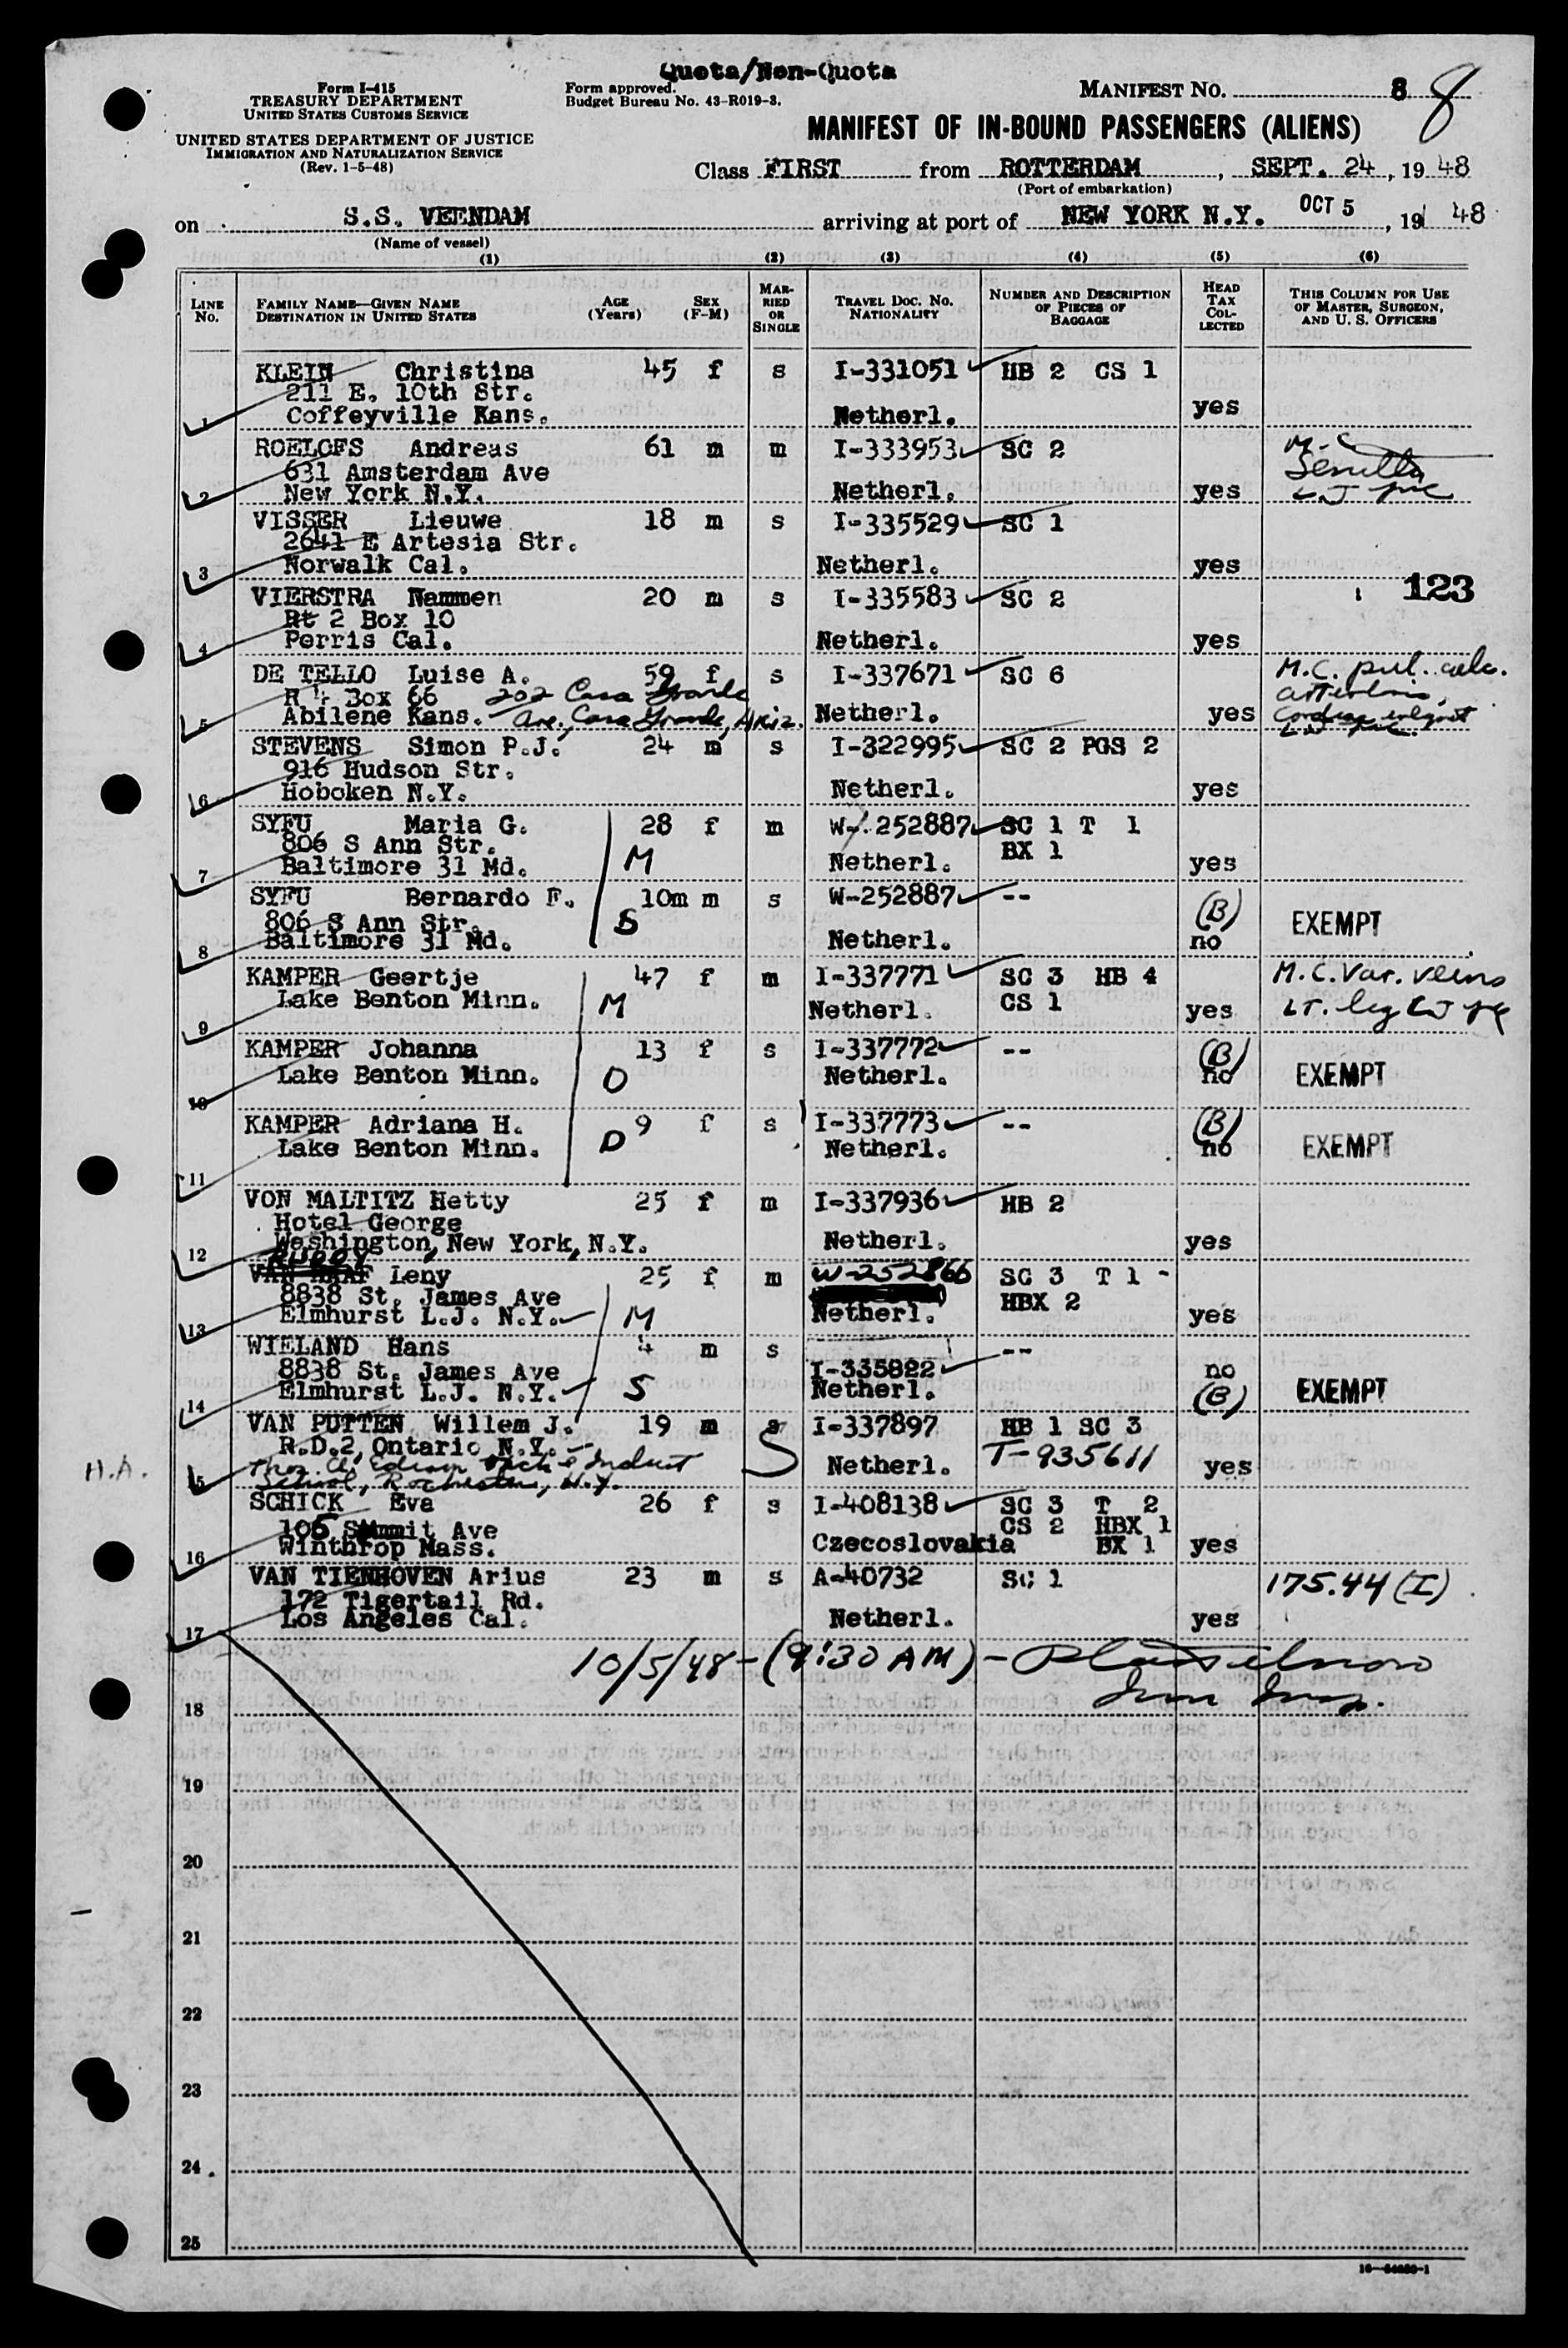 Quota/Non-Quota
Form I-415
TREASURY DEPARTMENT
UNITED STATES CUSTOMS SERVICE
UNITED STATES DEPARTMENT OF JUSTICE
IMMIGRATION AND NATURALIZATION SERVICE
(Rev. 1-5-48)
Form approved.
Budget Bureau No. 43-R019-3.
MANIFEST NO. 8 8
MANIFEST OF IN-BOUND PASSENGERS (ALIENS)
Class FIRST from ROTTERDAM, SEPT. 24, 1948
(Port of embarkation)
on S.S. VEENDAM arriving at port of NEW YORK N.Y. OCT 5, 19 48
(Name of vessel)
(1) (2) (3) (4) (5) (6)
LINE NO.
FAMILY NAME—GIVEN NAME
DESTINATION IN UNITED STATES
AGE (Years)
SEX (F-M)
MARRIED OR SINGLE
TRAVEL DOC. NO. NATIONALITY
NUMBER AND DESCRIPTION OF PIECES OF BAGGAGE
HEAD TAX COLLECTED
THIS COLUMN FOR USE OF MASTER, SURGEON, AND U. S. OFFICERS
KLEIN Christina 45 f s I-331051 HB 2 CS 1
211 E. 10th Str.
1 Coffeyville Kans. Netherl. yes
ROELOFS Andreas 61 m m I-333953 SC 2 M.C.
631 Amsterdam Ave Senility
2 New York N.Y. Netherl. yes
VISSER Lieuwe 18 m s I-335529 SC 1
2641 E Artesia Str.
3 Norwalk Cal. Netherl. yes
123
VIERSTRA Nammen 20 m s I-335583 SC 2
Rt 2 Box 10
4 Perris Cal. Netherl. yes
DE TELLO Luise A. 59 f s I-337671 SC 6 M.C. pul.
R 4 Box 66 202 Casa Grande
5 Abilene Kans. Ave., Casa Grande, Ariz. Netherl. yes
STEVENS Simon P.J. 24 m s I-322995 SC 2 PGS 2
916 Hudson Str.
6 Hoboken N.Y. Netherl. yes
SYFU Maria G. 28 f m W-252887 SC 1 T 1
806 S Ann Str. BX 1
7 Baltimore 31 Md. M Netherl. yes
SYFU Bernardo F. 10m m s W-252887 --
806 S Ann Str. S (B) EXEMPT
8 Baltimore 31 Md. Netherl. no
KAMPER Geertje 47 f m I-337771 SC 3 HB 4 M.C. Var. veins
9 Lake Benton Minn. M Netherl. CS 1 yes LT. leg
KAMPER Johanna 13 f s I-337772 -- (B)
10 Lake Benton Minn. D Netherl. no EXEMPT
KAMPER Adriana H. 9 f s I-337773 -- (B)
11 Lake Benton Minn. D Netherl. no EXEMPT
VON MALTITZ Hetty 25 f m I-337936 HB 2
Hotel George
12 Washington, New York, N.Y. Netherl. yes
Leny 25 f m W-252866 SC 3 T 1 -
8838 St. James Ave HBX 2
13 Elmhurst L.J. N.Y. M Netherl. yes
WIELAND Hans 4 m s I-335822 --
8838 St. James Ave no
14 Elmhurst L.J. N.Y. S Netherl. (B) EXEMPT
VAN PUTTEN Willem J. 19 m s I-337897 HB 1 SC 3
R.D.2, Ontario N.Y. S Netherl. T-935611 yes
H.A. 15 Thos. A. Edison Tech & Indust
School, Rochester, N.Y.
SCHICK Eva 26 f s I-408138 SC 3 T 2
105 Summit Ave CS 2 HBX 1
16 Winthrop Mass. Czecoslovakia BX 1 yes
VAN TIENHOVEN Arius 23 m s A-40732 SC 1 175.44 (I)
172 Tigertail Rd.
17 Los Angeles Cal. Netherl. yes
10/5/48 - (9:30 AM) -
Imm Insp.
18
19
20
21
22
23
24
25